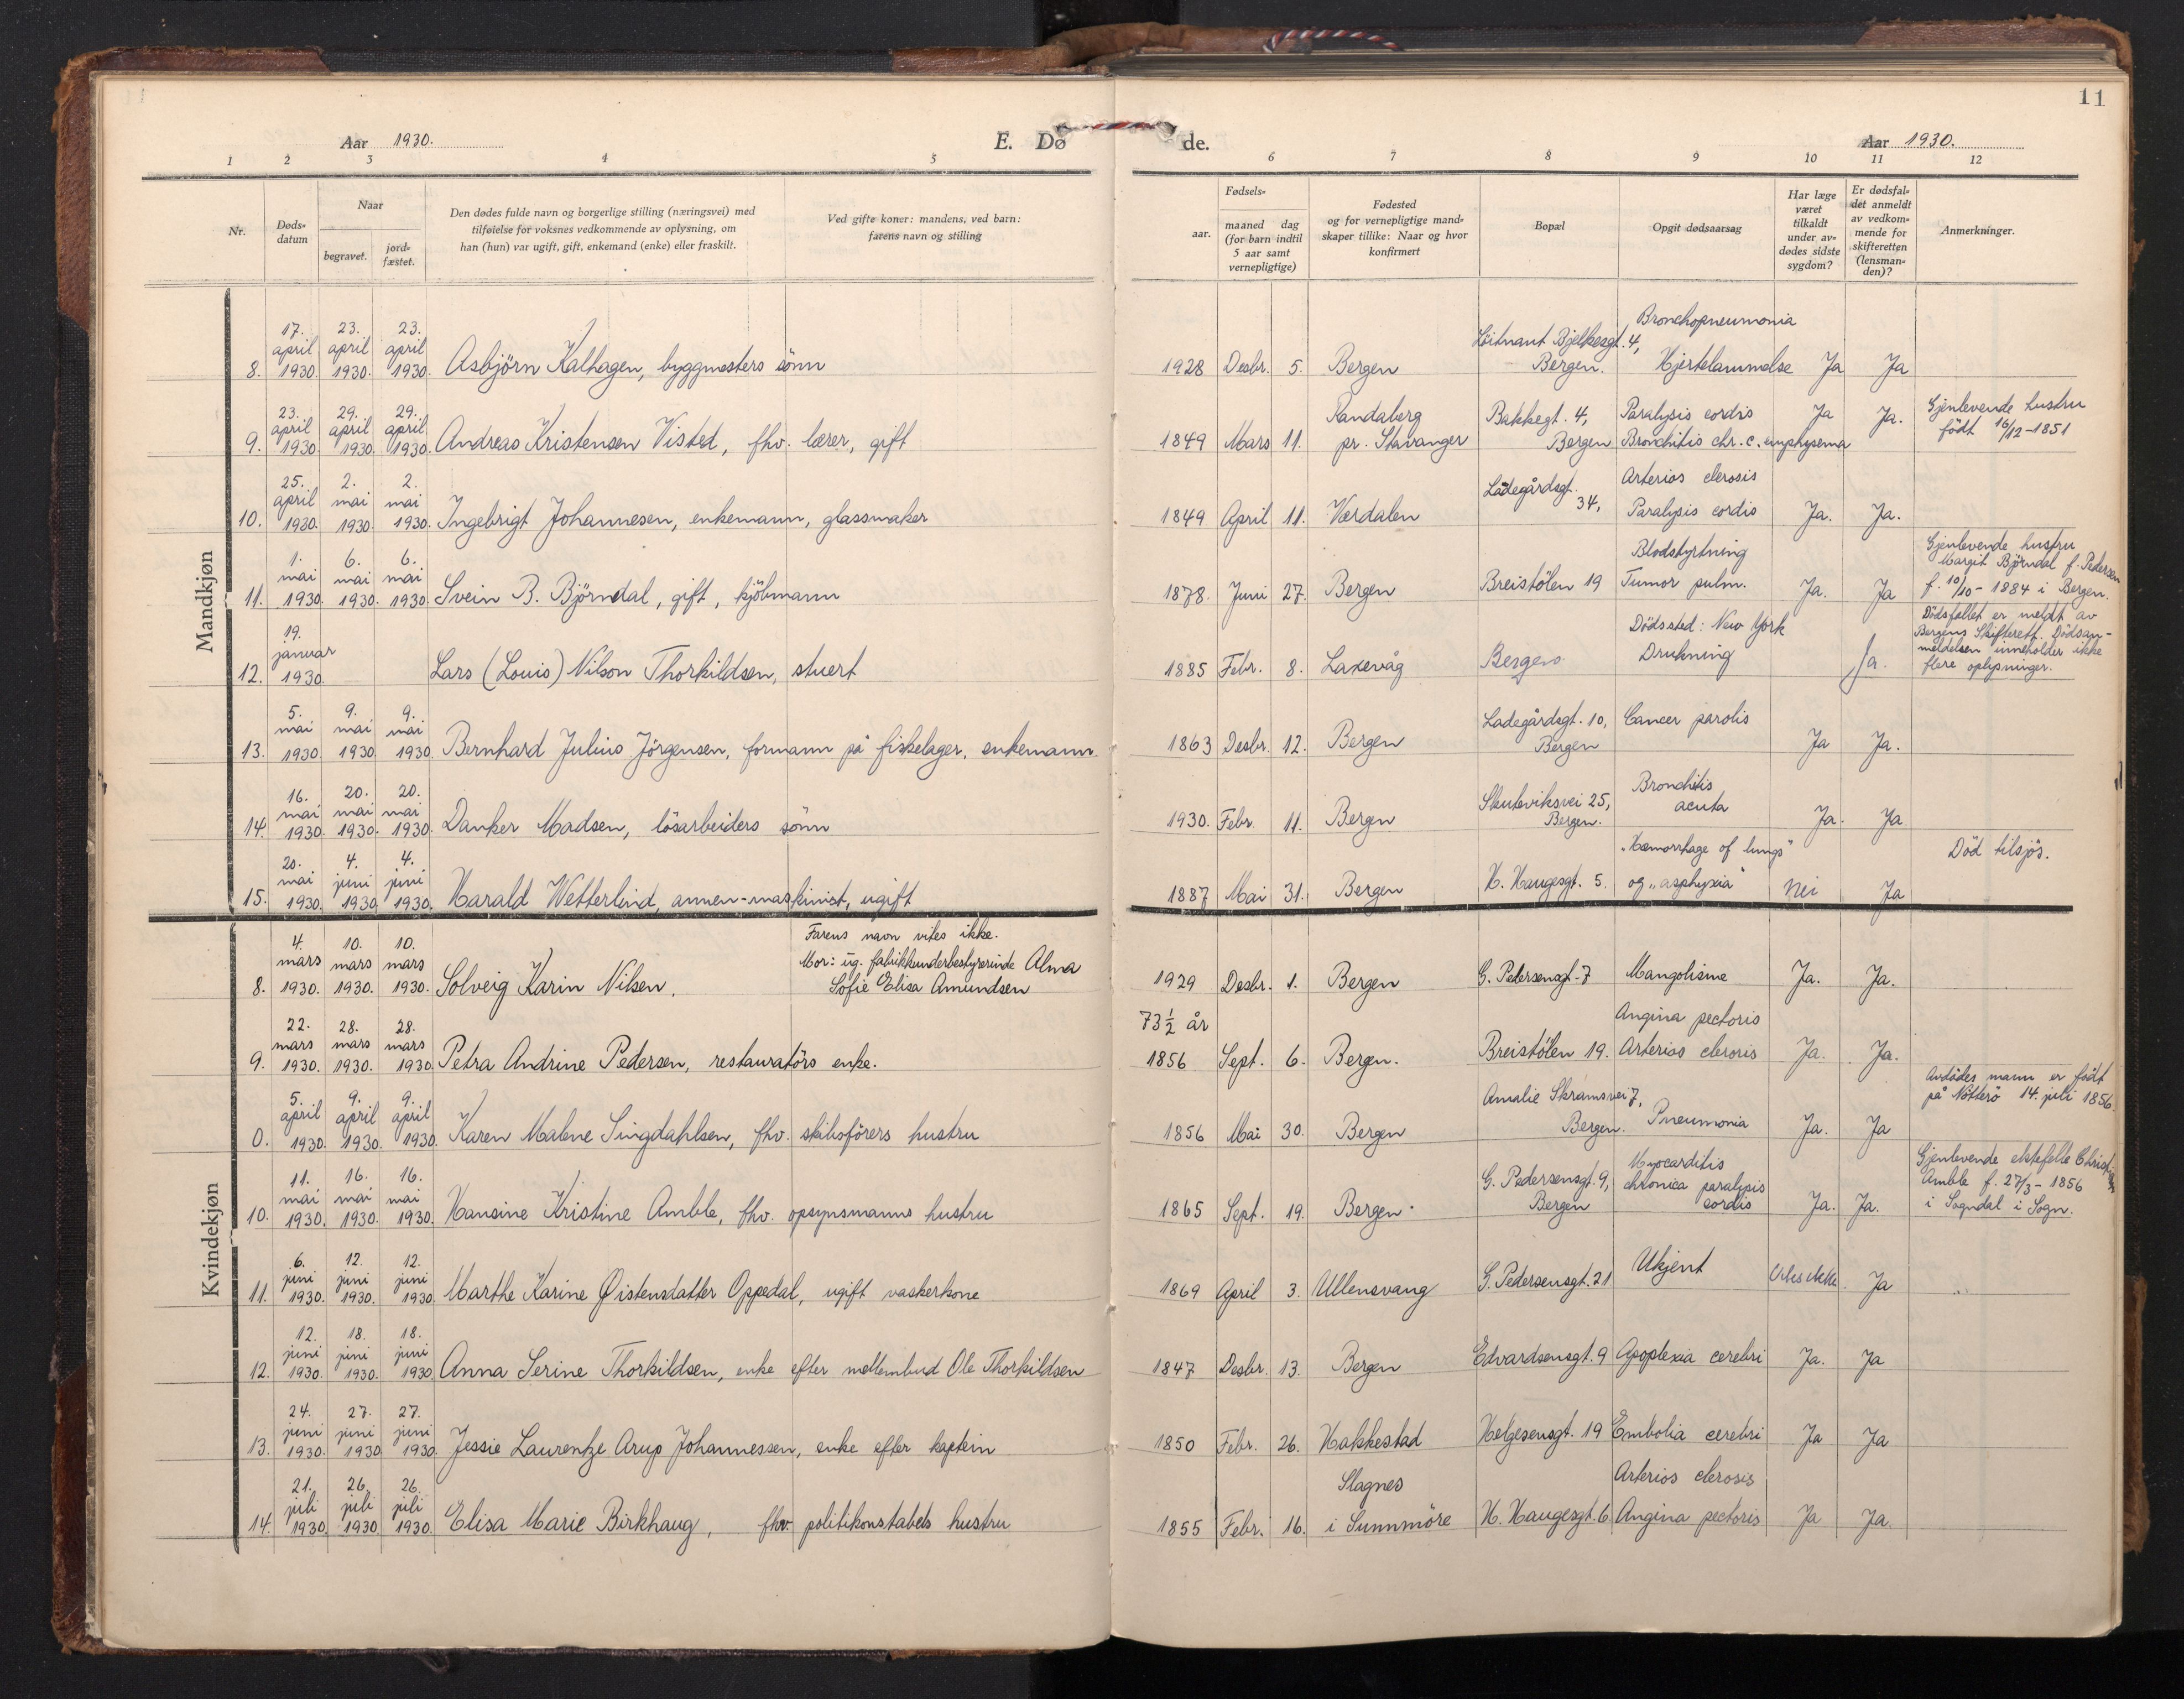 11
Aar 1930.
E. Dø
de.
Aar 1930.
1 2 3 4 5
6 7 8 9 10 11 12
Nr.
Døds-
datum
Naar
begravet.
jord-
fæstet.
Den dødes fulde navn og borgerlige stilling (næringsvei) med
tilføielse for voksnes vedkommende av oplysning, om
han (hun) var ugift, gift, enkemand (enke) eller fraskilt.
Ved gifte koner: mandens, ved barn:
farens navn og stilling
Fødsels-
aar.
maaned dag
(for barn indtil
5 aar samt
vernepligtige)
Fødested
og for vernepligtige mand-
skaper tillike: Naar og hvor
konfirmert
Bopæl
Opgit dødsaarsag
Har læge
været
tilkaldt
under av-
dødes sidste
sygdom?
Er dødsfal-
det anmeldt
av vedkom-
mende for
skifteretten
(lensman-
den)?
Anmerkninger.
Mandkjøn
17. 23. 23.
april april april
8. 1930. 1930. 1930. Asbjörn Kalhagen, byggmesters sönn
Bronchopneumonia
Löitnant Bjelkesgt. 4,
1928 Desbr. 5. Bergen Bergen. Hjertelammelse Ja Ja
23. 29. 29.
april april april
9. 1930. 1930. 1930. Andreas Kristensen Visted, fhv. lærer, gift
Randaberg Bakkegt. 4, Paralysis cordis Ja Ja. Gjenlevende hustru
1849 Mars 11. pr. Stavanger Bergen Bronchitis chr. c. emphysema født 16/12-1851
25. 2. 2.
april mai mai
10. 1930. 1930. 1930. Ingebrigt Johannesen, enkemann, glassmaker
Arterios clerosis
Ladegårdsgt.
1849 April 11. Værdalen 34, Paralysis cordis Ja. Ja.
1. 6. 6.
mai mai mai
11. 1930. 1930. 1930. Svein B. Björndal, gift, kjöbmann
Blodstyrtning
1878. Juni 27. Bergen Breistölen 19 Tumor pulm. Ja. Ja
Gjenlevende hustru
Margit Björndal f. Pedersen
f. 10/10-1884 i Bergen.
19.
januar
12. 1930. Lars (Louis) Nilson Thorkildsen, stuert
Dödssted: New York
1885 Febr. 8. Laxevåg Bergen. Drukning Ja.
Dödsfallet er meldt av
Bergens Skifterett. Dödsan-
meldelsen inneholder ikke
flere oplysninger.
5. 9. 9.
mai mai mai
13. 1930 1930. 1930 Bernhard Julius Jörgensen, formann på fiskelager, enkemann
Ladegårdsgt. 10, Cancer parotis
1863 Desbr. 12. Bergen Bergen Ja Ja.
16. 20. 20.
mai mai mai
14. 1930. 1930. 1930. Danker Madsen, lösarbeiders sönn
Bronchitis
Skuteviksvei 25, acuta
1930. Febr. 11. Bergen Bergen. Ja. Ja.
20. 4. 4.
mai juni juni
15. 1930. 1930. 1930. Harald Wetterlind, annen-maskinist, ugift
„Hæmorrhage of lungs" Död tilsjös.
1887 Mai 31. Bergen H. Haugesgt. 5. og „asphyxia" Nei Ja
Kvindekjøn
Farens navn vites ikke.
4. 10. 10.
mars mars mars Mor: ug. fabrikkunderbestyrerinde Alma
8. 1930. 1930. 1930. Solveig Karin Nilsen. Sofie Elisa Amundsen
1929 Desbr. 1. Bergen G. Pedersensgt. 7 Mongolisme Ja. Ja.
22. 28. 28.
mars mars mars
9. 1930. 1930. 1930. Petra Andrine Pedersen, restauratörs enke.
73½ år Angina pectoris
1856 Sept. 6. Bergen. Breistölen 19. Arterios clerosis Ja. Ja.
5. 9. 9.
april april april
0. 1930. 1930. 1930. Karen Malene Singdahlsen, fhv. skibsförers hustru
Amalie Skramsvei 7,
1856 Mai 30. Bergen Bergen. Pneumonia Ja. Ja
Avdödes mann er födt
på Nötterö 14. juli 1856.
11. 16. 16.
mai mai mai
10. 1930. 1930. 1930. Hansine Kristine Amble, fhv. opsynsmanns hustru
Myocarditis
G. Pedersensgt. 9, chronica paralysis
1865 Sept. 19. Bergen. Bergen cordis Ja. Ja.
Gjenlevende ektefelle Christian
Amble f. 27/3-1856
i Sogndal i Sogn.
6. 12. 12.
juni juni juni
11. 1930. 1930. 1930. Marthe Karine Øistensdatter Oppedal, ugift vaskerkone
1869 April 3. Ullensvang G. Pedersensgt. 21 Ukjent Vites ikke. Ja
12. 18. 18.
juni juni juni
12. 1930. 1930. 1930. Anna Serine Thorkildsen, enke efter mellembud Ole Thorkildsen
1847 Desbr. 13. Bergen Edvardsensgt. 9 Apoplexia cerebri Ja. Ja
24. 27. 27.
juni juni juni
13. 1930. 1930 1930. Jessie Laurentze Arup Johannessen, enke efter kaptein
1850 Febr. 26. Hakkestad Helgesensgt. 19 Embolia cerebri Ja Ja
21. 26. 26.
juli juli juli
14. 1930. 1930. 1930. Elisa Marie Birkhaug, fhv. politikonstabels hustru
Slagnes Arterios clerosis
1855 Febr. 16. i Sunnmöre H. Haugesgt. 6 Angina pectoris Ja Ja.